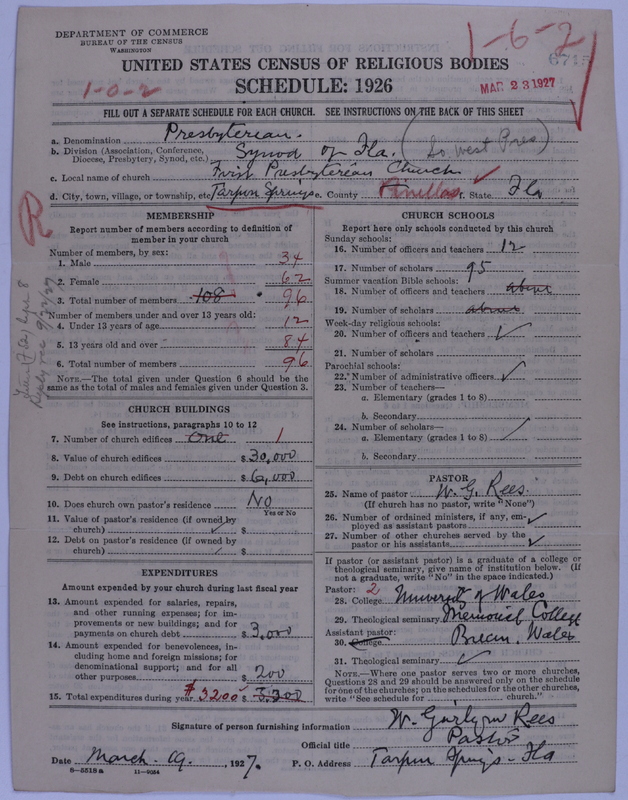 DEPARTMENT OF COMMERCE
BUREAU OF THE CENSUS
WASHINGTON
1-6-2
1-0-2
UNITED STATES CENSUS OF RELIGIOUS BODIES
SCHEDULE: 1926
MAR 23 1927
FILL OUT A SEPARATE SCHEDULE FOR EACH CHURCH. SEE INSTRUCTIONS ON THE BACK OF THIS SHEET
a. Denomination Presbyterian.
b. Division (Association, Conference, Diocese, Presbytery, Synod, etc.) Synod of Fla. (So. West Pres)
c. Local name of church First Presbyterian Church
d. City, town, village, or township, etc. Tarpon Springs e. County Pinellas f. State Fla
R
MEMBERSHIP
Report number of members according to definition of
member in your church
Number of members, by sex:
1. Male 34
2. Female 62
3. Total number of members 108 96
Number of members under and over 13 years old:
4. Under 13 years of age 12
5. 13 years old and over 84
6. Total number of members 96
NOTE.—The total given under Question 6 should be the
same as the total of males and females given under Question 3.
CHURCH BUILDINGS
See instructions, paragraphs 10 to 12
7. Number of church edifices One 1
8. Value of church edifices $ 30,000
9. Debt on church edifices $ 6,000
10. Does church own pastor's residence No
Yes or No
11. Value of pastor's residence (if owned by
church) $
12. Debt on pastor's residence (if owned by
church) $
EXPENDITURES
Amount expended by your church during last fiscal year
13. Amount expended for salaries, repairs,
and other running expenses; for im-
provements or new buildings; and for
payments on church debt $ 3,000
14. Amount expended for benevolences, in-
cluding home and foreign missions; for
denominational support; and for all
other purposes $ 200
15. Total expenditures during year $3200 $ 3,300
CHURCH SCHOOLS
Report here only schools conducted by this church
Sunday schools:
16. Number of officers and teachers 12
17. Number of scholars 95
Summer vacation Bible schools:
18. Number of officers and teachers above
19. Number of scholars above
Week-day religious schools:
20. Number of officers and teachers
21. Number of scholars
Parochial schools:
22. Number of administrative officers
23. Number of teachers—
a. Elementary (grades 1 to 8)
b. Secondary
24. Number of scholars—
a. Elementary (grades 1 to 8)
b. Secondary
PASTOR
25. Name of pastor W. G. Rees
(If church has no pastor, write "None")
26. Number of ordained ministers, if any, em-
ployed as assistant pastors
27. Number of other churches served by the
pastor or his assistants
If pastor (or assistant pastor) is a graduate of a college or
theological seminary, give name of institution below. (If
not a graduate, write "No" in the space indicated.)
Pastor: 2
28. College University of Wales
29. Theological seminary Memorial College
Assistant pastor:
30. College Wales
31. Theological seminary
NOTE.—Where one pastor serves two or more churches,
Questions 28 and 29 should be answered only on the schedule
for one of the churches; on the schedules for the other churches,
write "See schedule for church."
Signature of person furnishing information W. Rees
Official title Pastor
Date March 19, 1927. P. O. Address Tarpon Springs - Fla
8—5518 a 11—9054